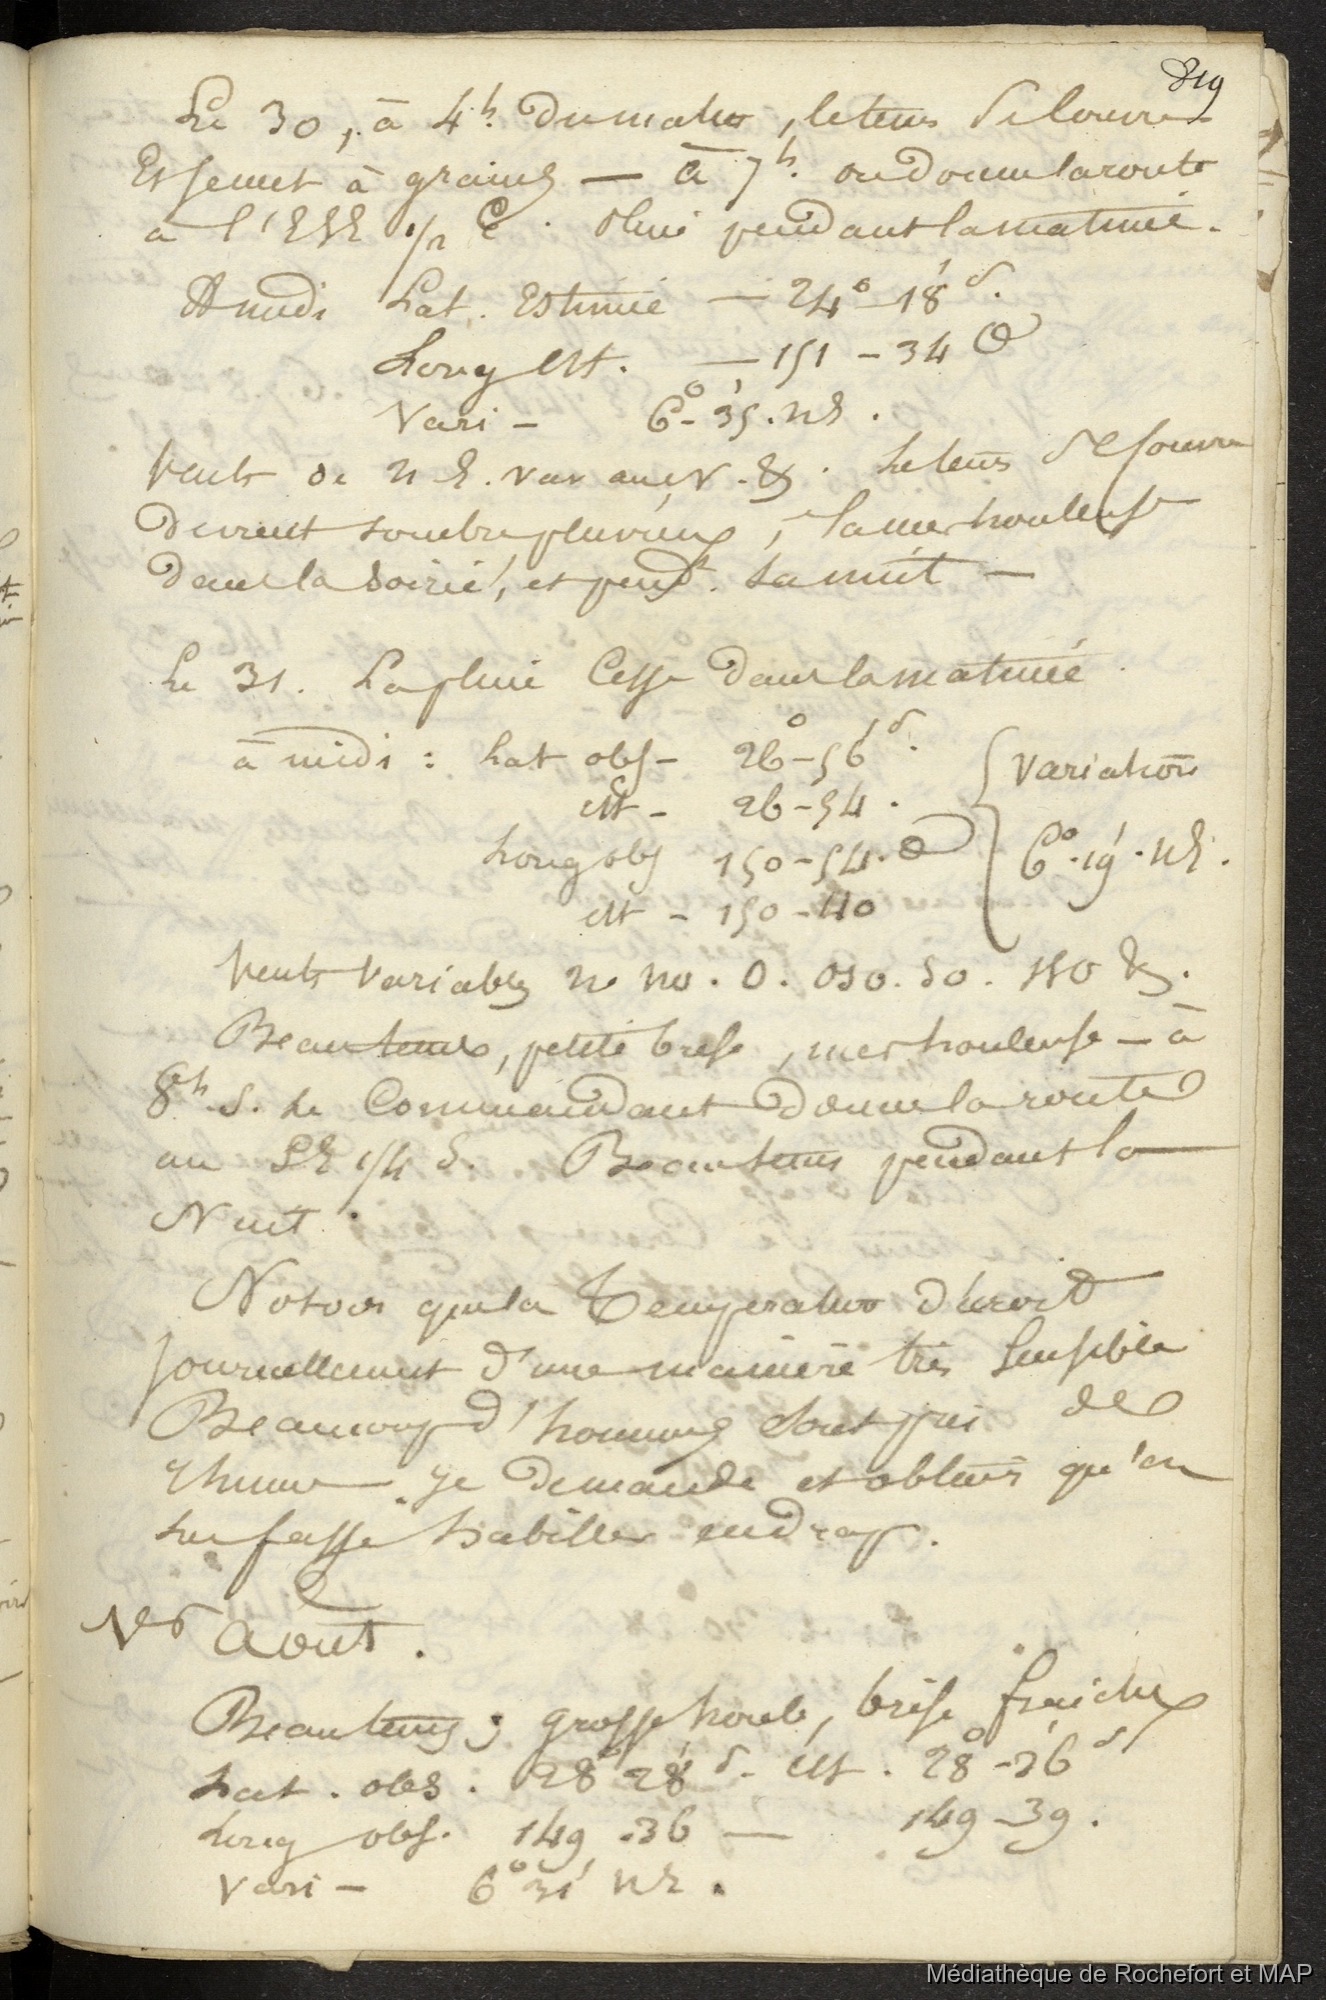 819
Le 30, à 4h. du matin, le tems se couvre
Et se met à grains — à 7h. on donne la route
à l'ESE 1/2 E. Pluie pendant la matinée.
A midi Lat. Estimée — 24° 18' S.
Long Est. — 151 - 34 O
Vari — 6° - 35'. NE.
Vents de NE. var au N. &. Le tems se couvre
devient sombre pluvieux, la mer houleuse
dans la soirée, et pendt. la nuit —
Le 31. La pluie cesse dans la matinée
à midi : Lat obs - 26° - 56' S.
est - 26 - 54.
Long obs 150 - 54. O
est - 150 - 40
Variation
6°. 19'. NE.
Vents Variables N. NO. O. OSO. SO. SSO &.
Beau tems, petite brise, mer houleuse — à
8h. S. le Commandant donne la route
au SE 1/4 S. Beau tems pendant la
Nuit.
Notons que la Temperature décroit
journellement d'une manière très sensible
Beaucoup d'hommes sont pris de
rhume. je demande et obtiens qu'on
les fasse habiller en drap.
Août.
Beau tems ; grosse houle, brise fraiche
Lat. obs. 28° 28' S. est. 28° - 36' S
Long obs. 149 - 36 — 149 - 39.
Vari — 6° 31' NE.
Médiathèque de Rochefort et MAP